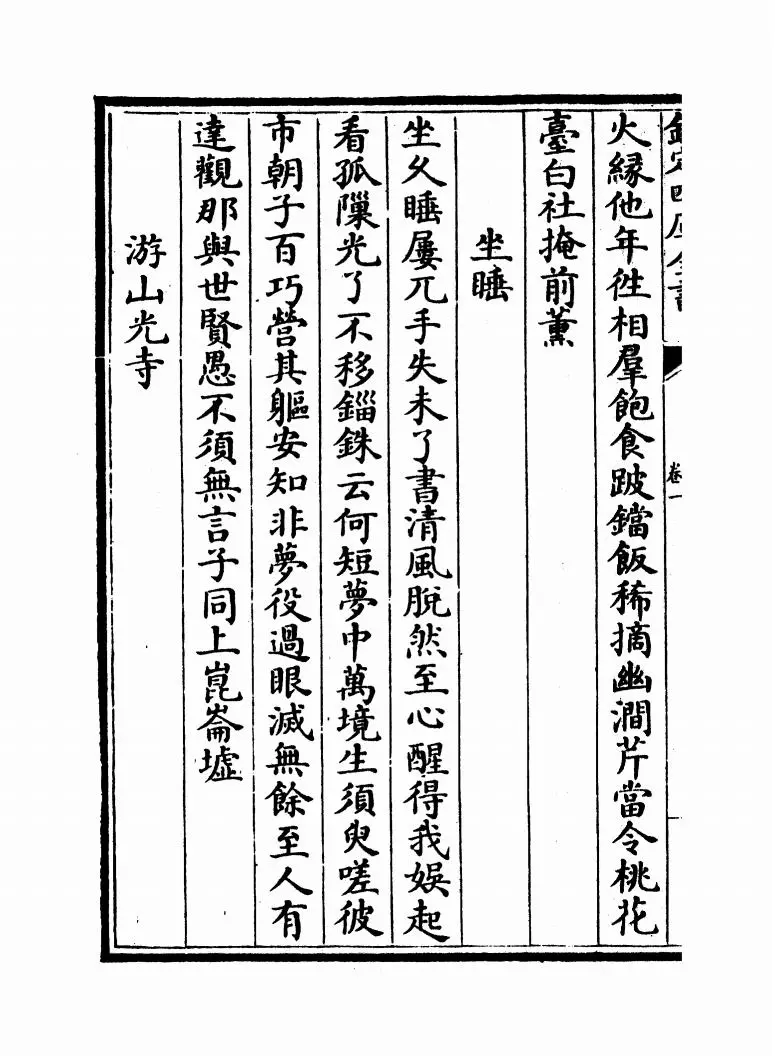 欽定四庫全書
卷一
火緣他年徃相羣飽食跛鐺飯稀摘幽澗芹當令桃花
臺白社掩前薰
坐睡
坐久睡屢兀手失未了書清風脫然至心醒得我娛起
看孤隟光了不移錙銖云何短夢中萬境生須臾嗟彼
市朝子百巧營其軀安知非夢役過眼滅無餘至人有
達觀那與世賢愚不須無言子同上崑崙墟
游山光寺